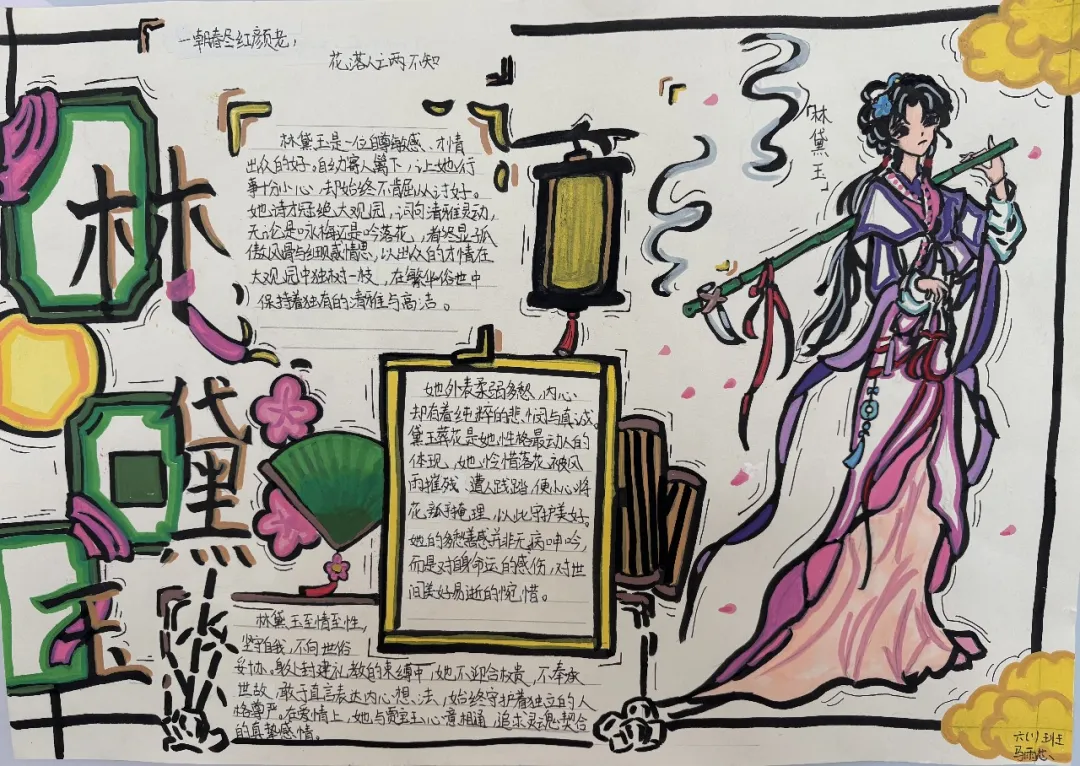 一朝春尽红颜老,
花落人亡两不知
林黛玉
「林黛玉」
林黛玉是一位自尊敏感、才情
出众的女子。自幼寄人篱下,让她行
事十分小心,却始终不肯屈从讨好。
她诗才冠绝大观园,词句清雅灵动,
无论是咏梅还是吟落花,都尽显孤
傲风骨与细腻感情思,以出众的才情在
大观园中独树一枝,在繁华俗世中
保持着独有的清雅与高洁。
她外表柔弱多愁,内心
却有着纯粹的悲悯与真诚。
黛玉葬花是她性格最动人的
体现,她怜惜落花被风
雨摧残、遭人践踏,便小心将
花瓣掩埋,以此守护美好。
她的多愁善感并非无病呻吟,
而是对自身命运的感伤,对世
间美好易逝的惋惜。
林黛玉至情至性,
坚守自我,不向世俗
妥协。身处封建礼教的束缚中,她不迎合权贵,不奉承
世故,敢于直言表达内心想法,始终守护着独立的人
格尊严。在爱情上,她与贾宝玉心意相通,追求灵魂契合
的真挚感情。
六(1)班
马雨